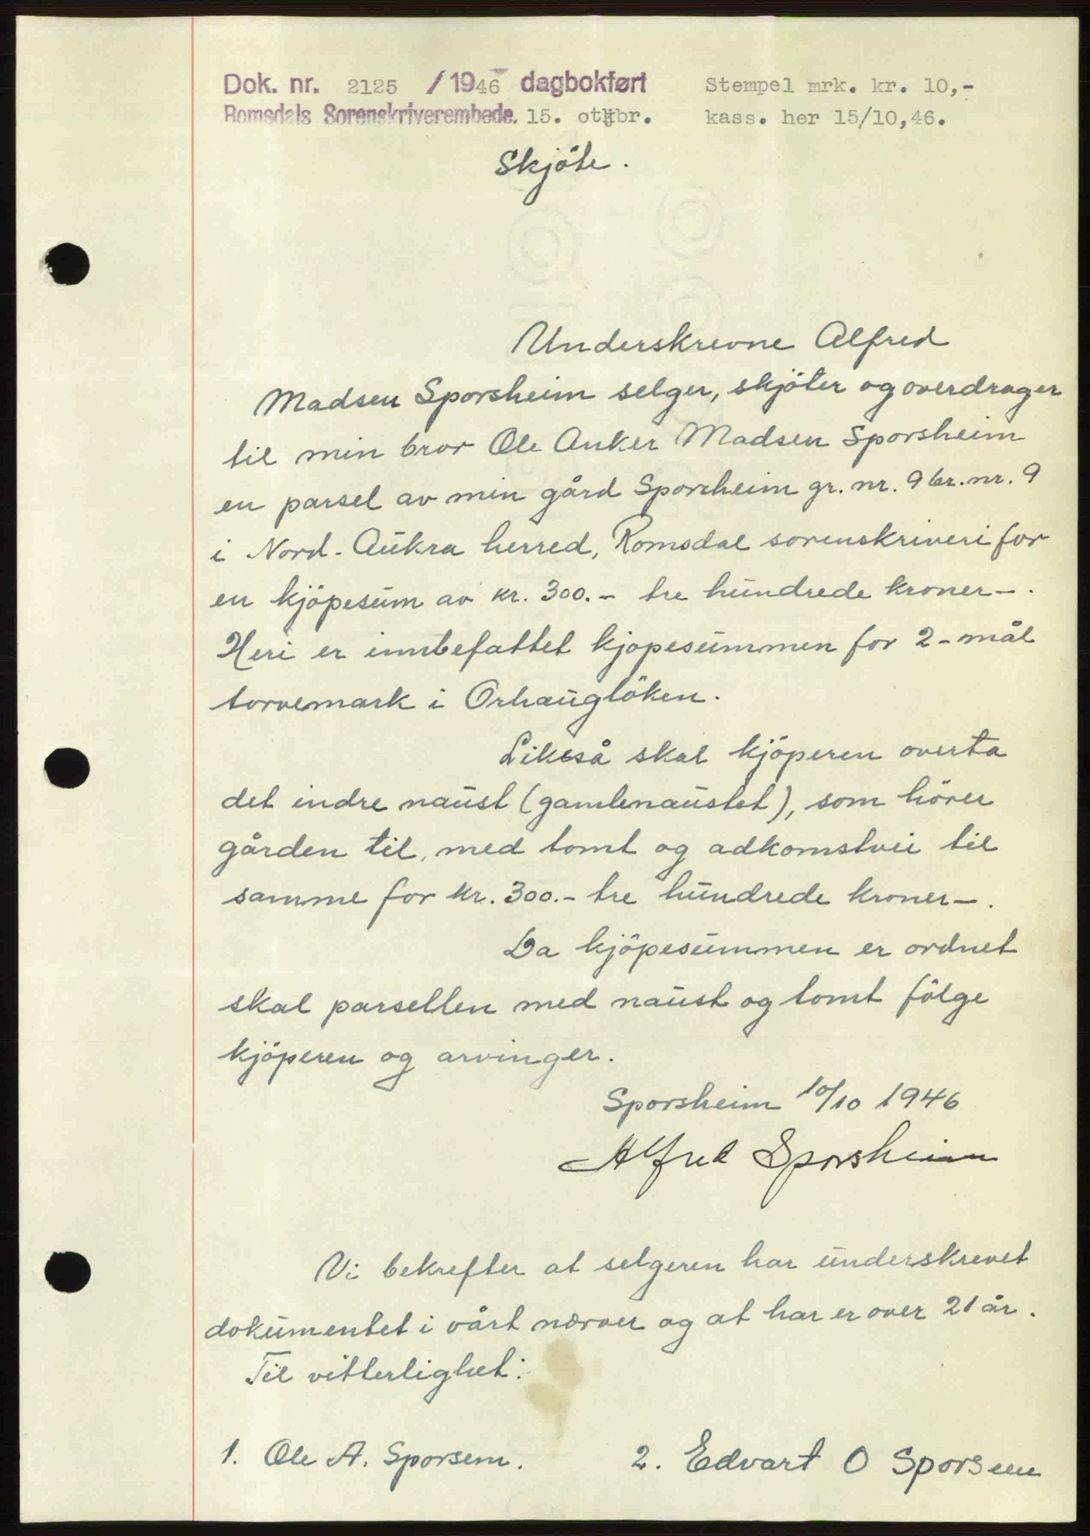 Dok. nr. 2125 /1946 dagbokført Stempel mrk. kr. 10,-
Romsdals Sorenskriverembede. 15. otkbr. kass. her 15/10,46.
Skjöte.
Underskrevne Alfred
Madsen Sporsheim selger, skjöter og overdrager
til min bror Ole Anker Madsen Sporsheim
en parsel av min gård Sporsheim gr. nr. 9 br. nr. 9
i Nord-Aukra herred, Romsdal sorenskriveri for
en kjöpesum av kr. 300.- tre hundrede kroner-.
Heri er innbefattet kjöpesummen for 2-mål
torvemark i Orhauglöken.
Likeså skal kjöperen overta
det indre naust (gamlenaustet), som hörer
gården til, med tomt og adkomstvei til
samme for kr. 300.- tre hundrede kroner-.
Da kjöpesummen er ordnet
skal parsellen med naust og tomt fölge
kjöperen og arvinger.
Sporsheim 10/10 1946
Alfred Sporsheim
Vi bekrefter at selgeren har underskrevet
dokumentet i vårt nærver og at har er over 21 år.
Til vitterlighet:
1. Ole A. Sporsem. 2. Edvart O Sporsem